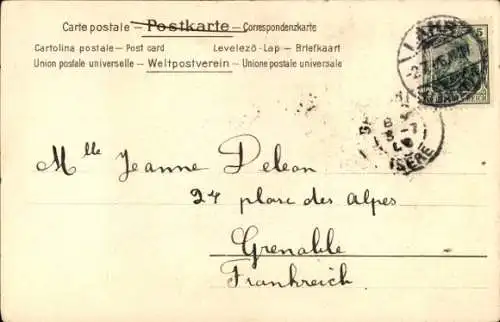 Carte postale – Postkarte – Correspondenzkarte
Cartolina postale – Post card Levelező-Lap – Briefkaart
Union postale universelle – Weltpostverein – Unione postale universale
LAHR
5
REICH
ISERE
Mlle Jeanne Deleon
24 place des alpes
Grenoble
Frankreich